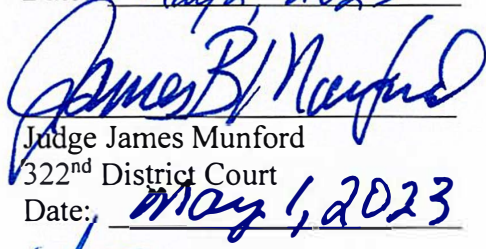 James B Munford
Judge James Munford
322nd District Court
Date: May 1, 2023